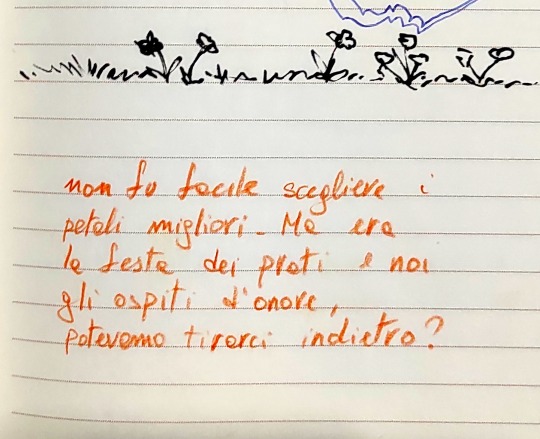 non fu facile scegliere i
petali migliori. Ma era
la festa dei prati e noi
gli ospiti d'onore,
potevamo tirarci indietro?